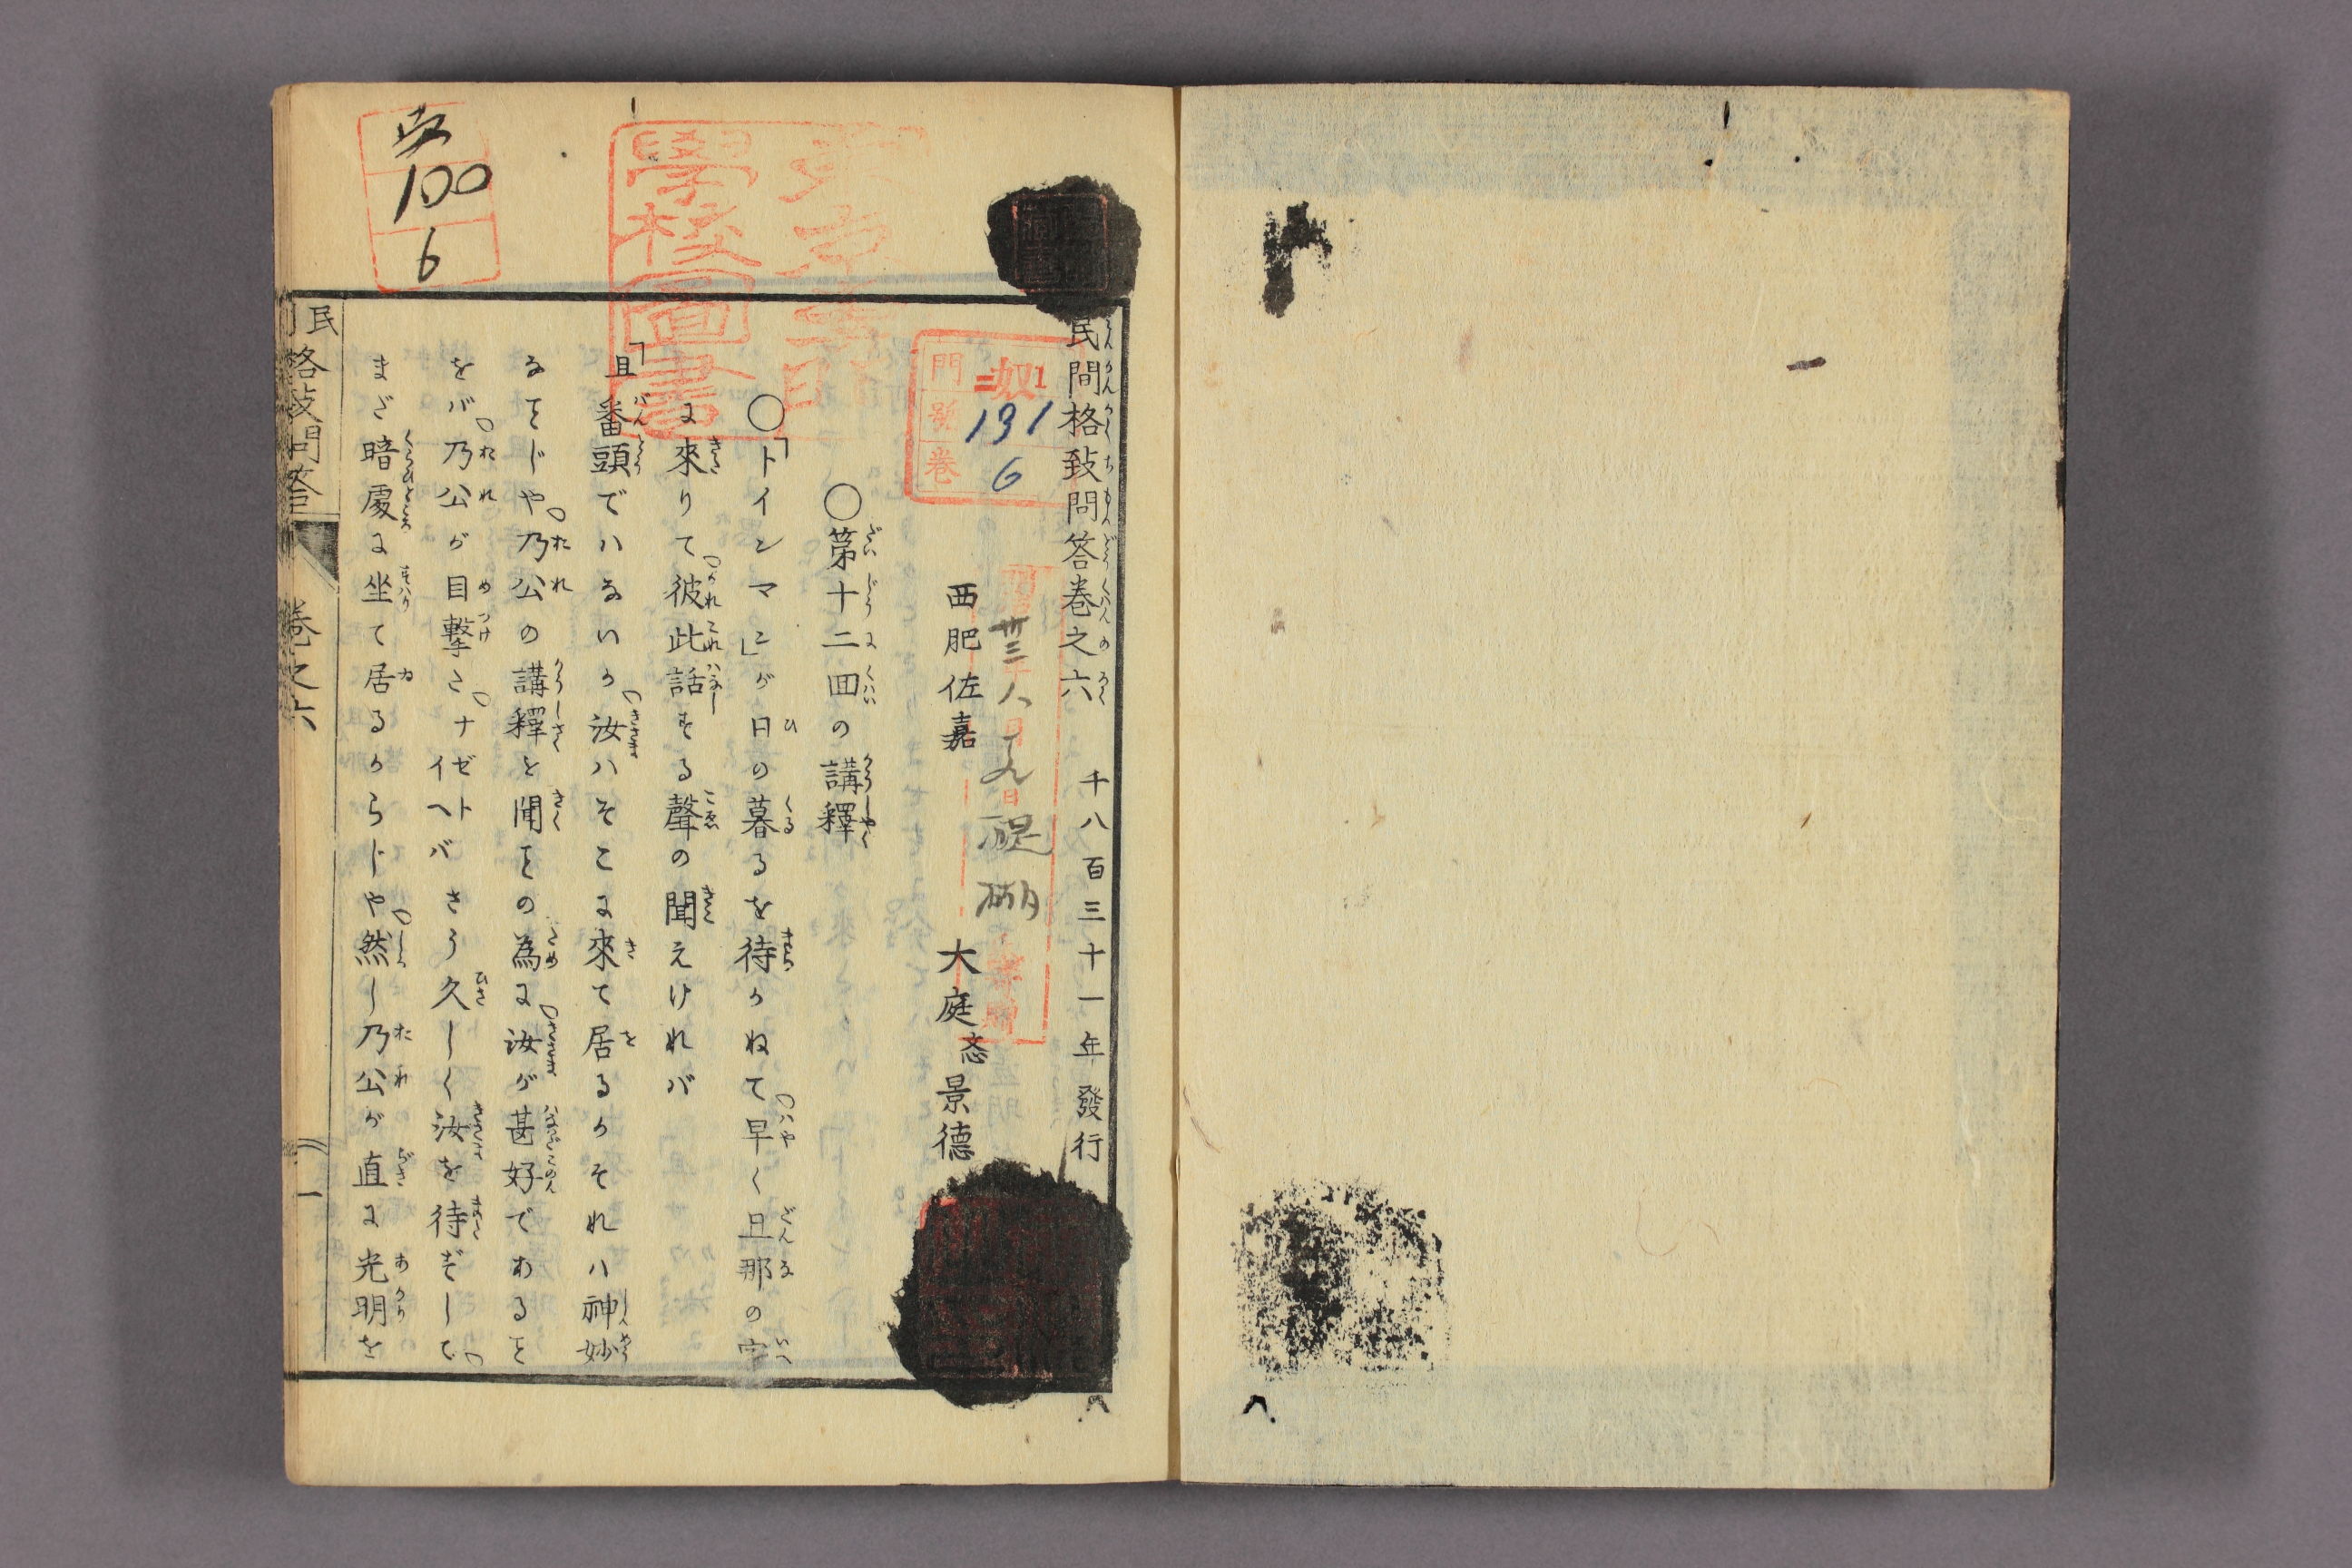 民間格致問答卷之六　千八百三十一年發行
西肥佐嘉　大庭忞景德
○第十二回の講釋
○「トインマン」が日の暮るを待かねて早く旦那の
に來りて彼此話する聲の聞えけれバ
「旦　番頭でハないか汝ハそこに來て居るかそれハ神妙
なことじや乃公の講釋を聞ことの為に汝が甚好であること
をバ乃公が目撃さナゼトイヘバさう久しく汝を待ずして
まだ暗處に坐て居るからじや然し乃公が直に光明を
民間格致問答
卷之六
一
學校圖書
門
號
卷
奴1
131
6
100
6